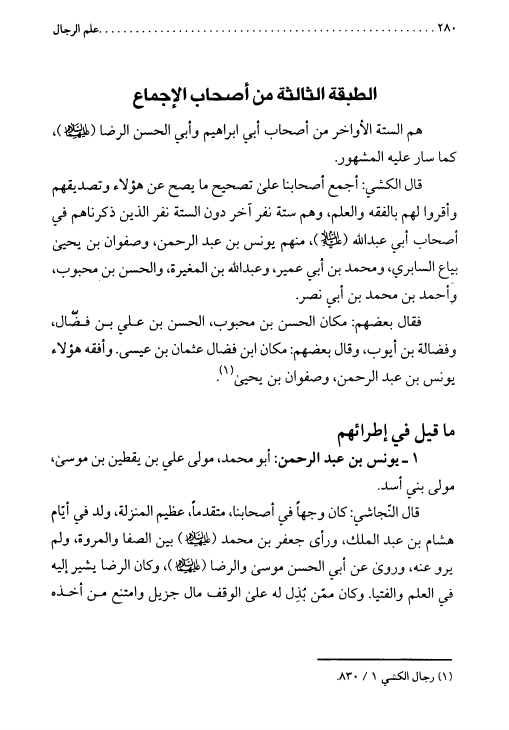 ٢٨٠ ........................................................ علم الرجال
الطبقة الثالثة من أصحاب الإجماع
هم الستة الأواخر من أصحاب أبي ابراهيم وأبي الحسن الرضا (عليهما السلام)،
كما سار عليه المشهور.
قال الكشي: أجمع أصحابنا علىٰ تصحيح ما يصح عن هؤلاء وتصديقهم
وأقروا لهم بالفقه والعلم، وهم ستة نفر آخر دون الستة نفر الذين ذكرناهم في
أصحاب أبي عبدالله (عليه السلام)، منهم يونس بن عبد الرحمن، وصفوان بن يحيىٰ
بياع السابري، ومحمد بن أبي عمير، وعبدالله بن المغيرة، والحسن بن محبوب،
وأحمد بن محمد بن أبي نصر.
فقال بعضهم: مكان الحسن بن محبوب، الحسن بن علي بن فضّال،
وفضالة بن أيوب، وقال بعضهم: مكان ابن فضال عثمان بن عيسى. وأفقه هؤلاء
يونس بن عبد الرحمن، وصفوان بن يحيىٰ(١).
ما قيل في إطرائهم
١ ـ يونس بن عبد الرحمن: أبو محمد، مولى علي بن يقطين بن موسىٰ،
مولى بني أسد.
قال النّجاشي: كان وجهاً في أصحابنا، متقدماً، عظيم المنزلة، ولد في أيّام
هشام بن عبد الملك، ورأى جعفر بن محمد (عليهما السلام) بين الصفا والمروة، ولم
يرو عنه، وروىٰ عن أبي الحسن موسىٰ والرضا (عليهما السلام)، وكان الرضا يشير إليه
في العلم والفتيا. وكان ممّن بُذِل له علىٰ الوقف مال جزيل وامتنع من أخذه
(١) رجال الكشي ١ / ٨٣٠.